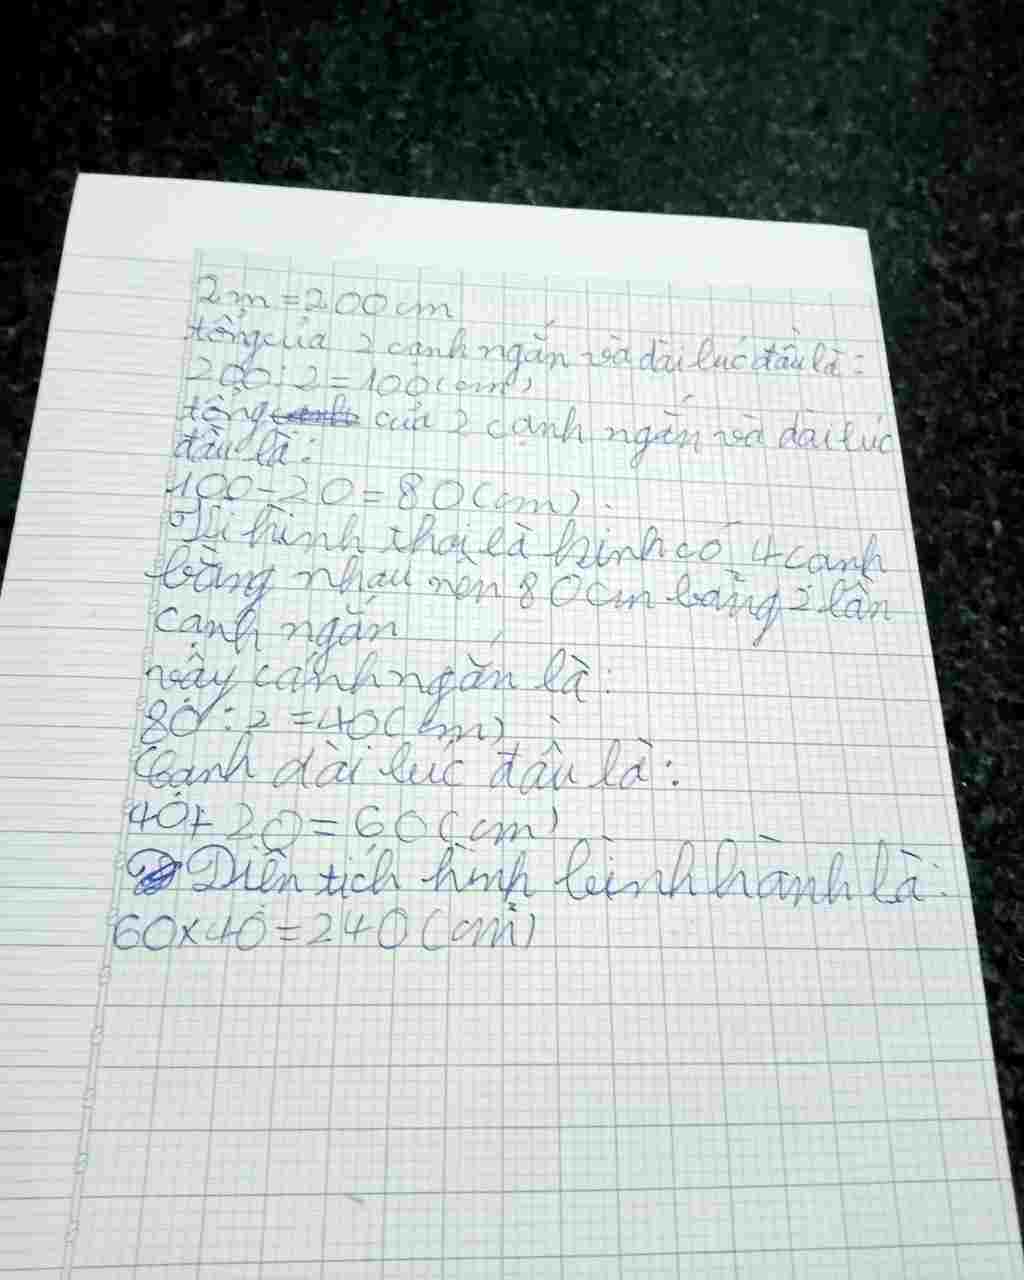 2m = 200cm
tổng của 2 cạnh ngắn và dài lúc đầu là:
200 : 2 = 100 (cm)
tổng của 2 cạnh ngắn và dài lúc
đầu là:
100 - 20 = 80 (cm)
Vì hình thoi là hình có 4 cạnh
bằng nhau nên 80cm bằng 2 lần
cạnh ngắn
vậy cạnh ngắn là:
80 : 2 = 40 (cm)
Cạnh dài lúc đầu là:
40 + 20 = 60 (cm)
Diện tích hình bình hành là:
60 x 40 = 240 (cm²)